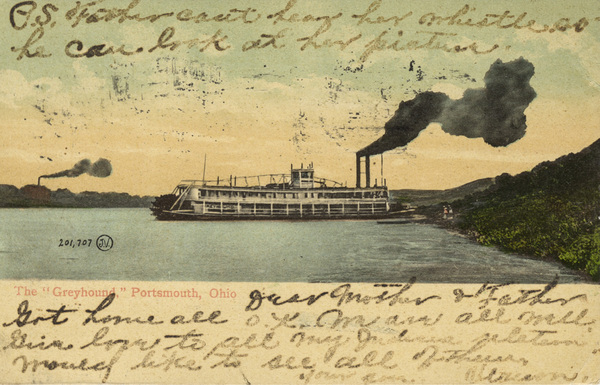 P.S. Father can't hear her whistle so
he can look at her picture.
201,707 JV
The "Greyhound" Portsmouth, Ohio
Dear Mother & Father
Got home all O.K. We are all well
Give love to all my Indiana relation
Would like to see all of them.
Your son